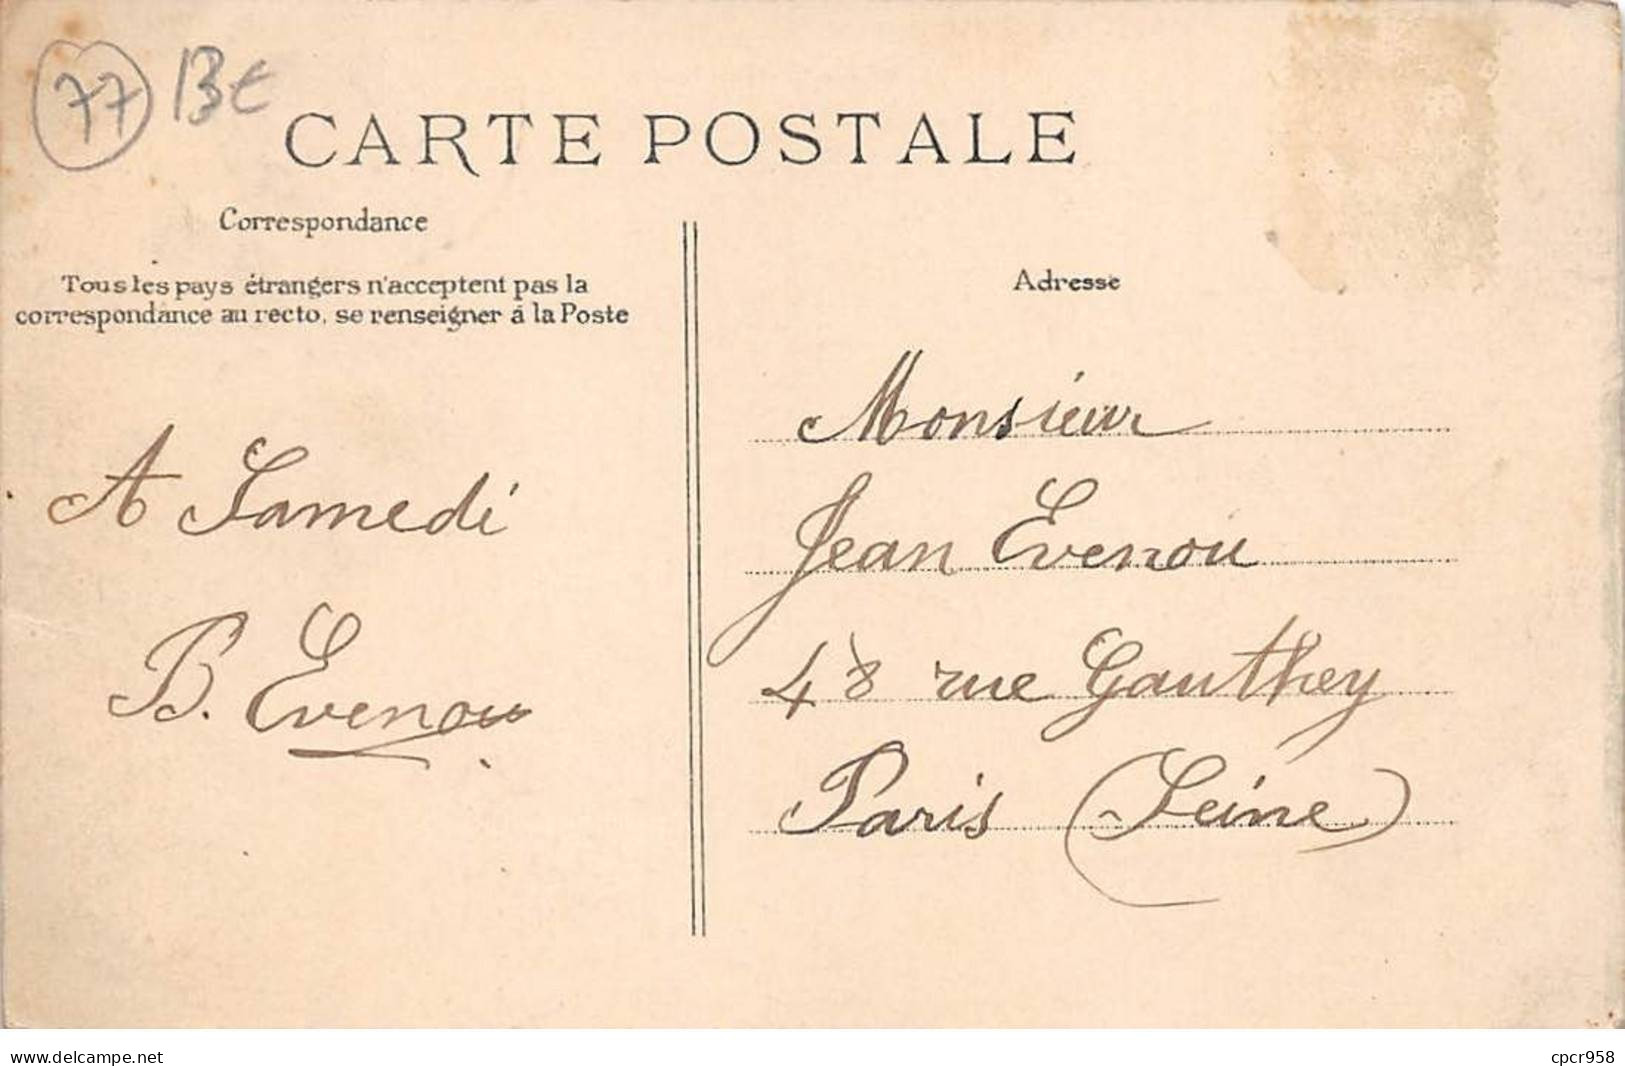 77 13€
CARTE POSTALE
Correspondance
Tous les pays étrangers n'acceptent pas la
correspondance au recto, se renseigner à la Poste
A Samedi
B. Evenou
Adresse
Monsieur
Jean Evenou
48 rue Gauthey
Paris (Seine)
www.delcampe.net
cpcr958